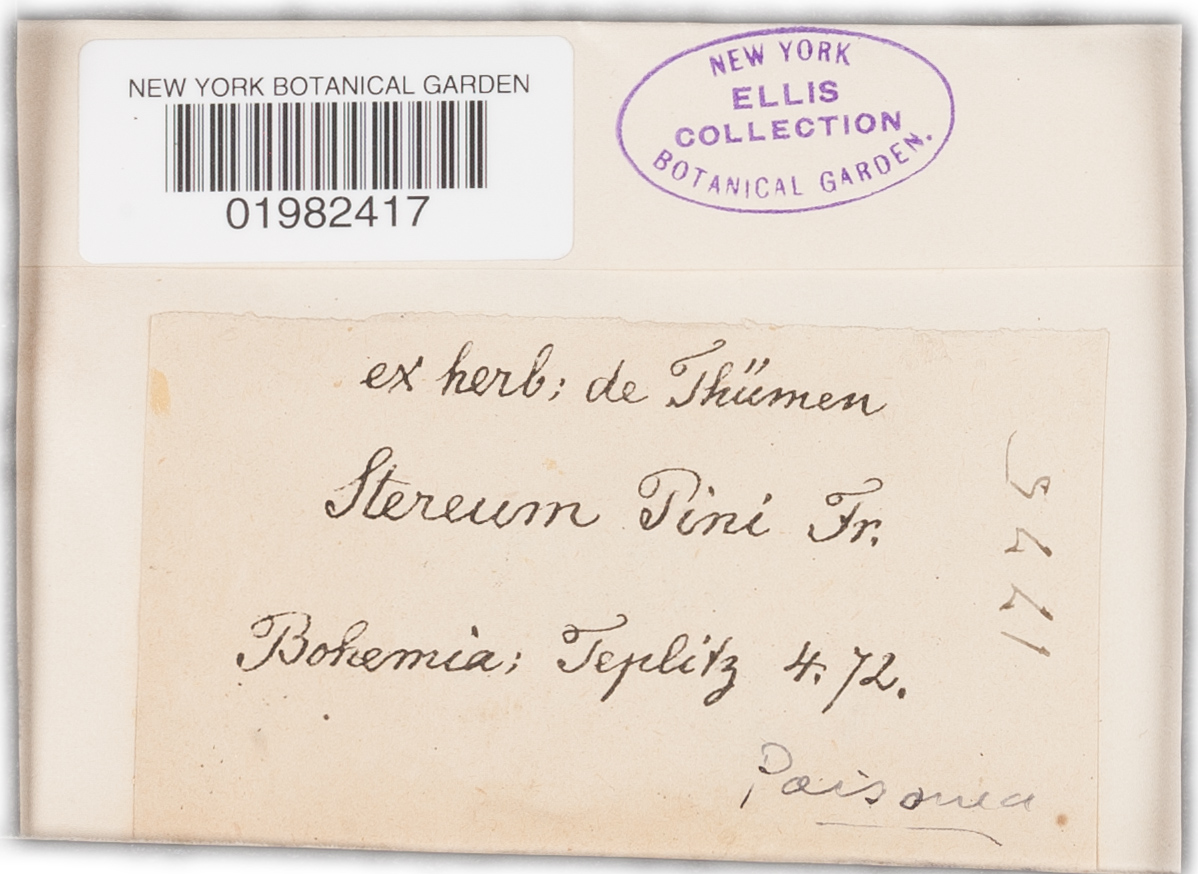 NEW YORK BOTANICAL GARDEN
01982417
NEW YORK
ELLIS
COLLECTION
BOTANICAL GARDEN.
ex herb; de Thümen
Stereum Pini Fr.
Bohemia; Teplitz 4. 72.
1775